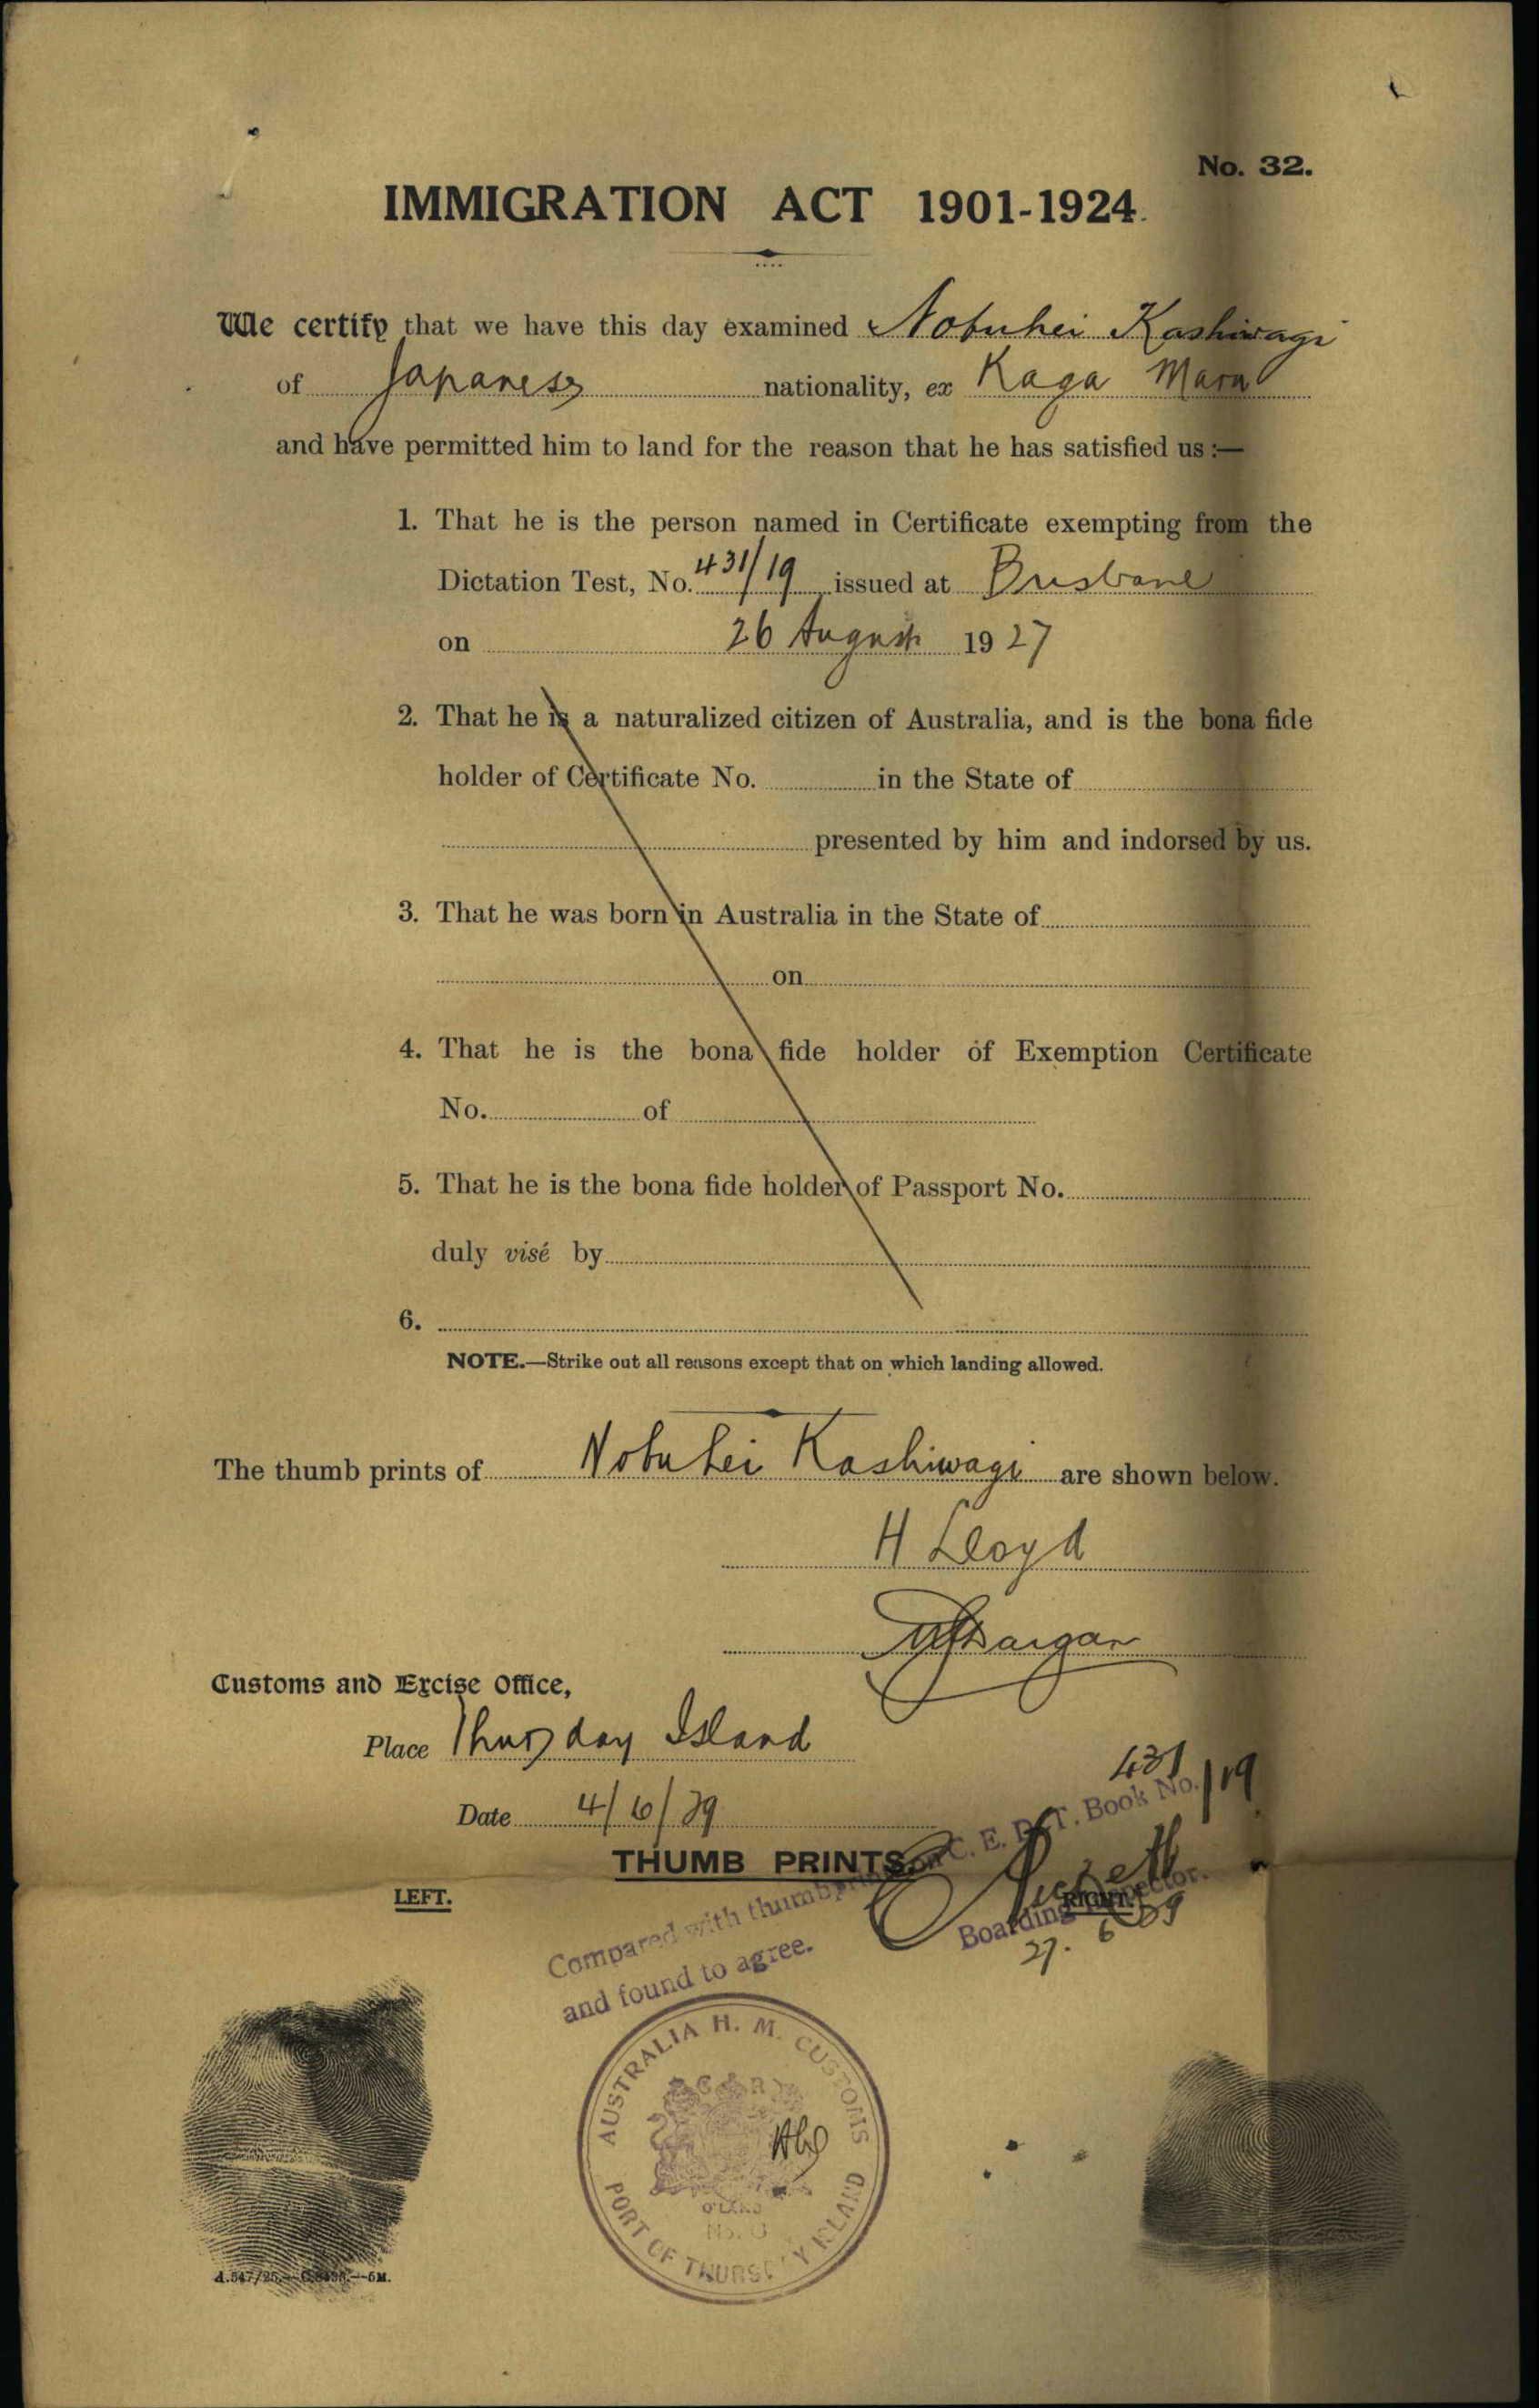 No. 32.
IMMIGRATION ACT 1901-1924.
We certify that we have this day examined Nobuhei Kashiwagi
of Japanese nationality, ex Kaga Maru
and have permitted him to land for the reason that he has satisfied us :—
1. That he is the person named in Certificate exempting from the
Dictation Test, No. 431/19 issued at Brisbane
on 26 August 1927
2. That he is a naturalized citizen of Australia, and is the bona fide
holder of Certificate No. in the State of
presented by him and indorsed by us.
3. That he was born in Australia in the State of
on
4. That he is the bona fide holder of Exemption Certificate
No. of
5. That he is the bona fide holder of Passport No.
duly visé by
6.
NOTE.—Strike out all reasons except that on which landing allowed.
The thumb prints of Nobuhei Kashiwagi are shown below.
H Lloyd
Customs and Excise Office,
Place Thursday Island
Date 4/6/29
431/19
THUMB PRINTS.
LEFT.
RIGHT.
Compared with thumbprints on C. E. D. T. Book No.
and found to agree.
Boarding Inspector.
27. 6 29
AUSTRALIA H. M. CUSTOMS
G R
Q'LAND
PORT OF THURSDAY ISLAND